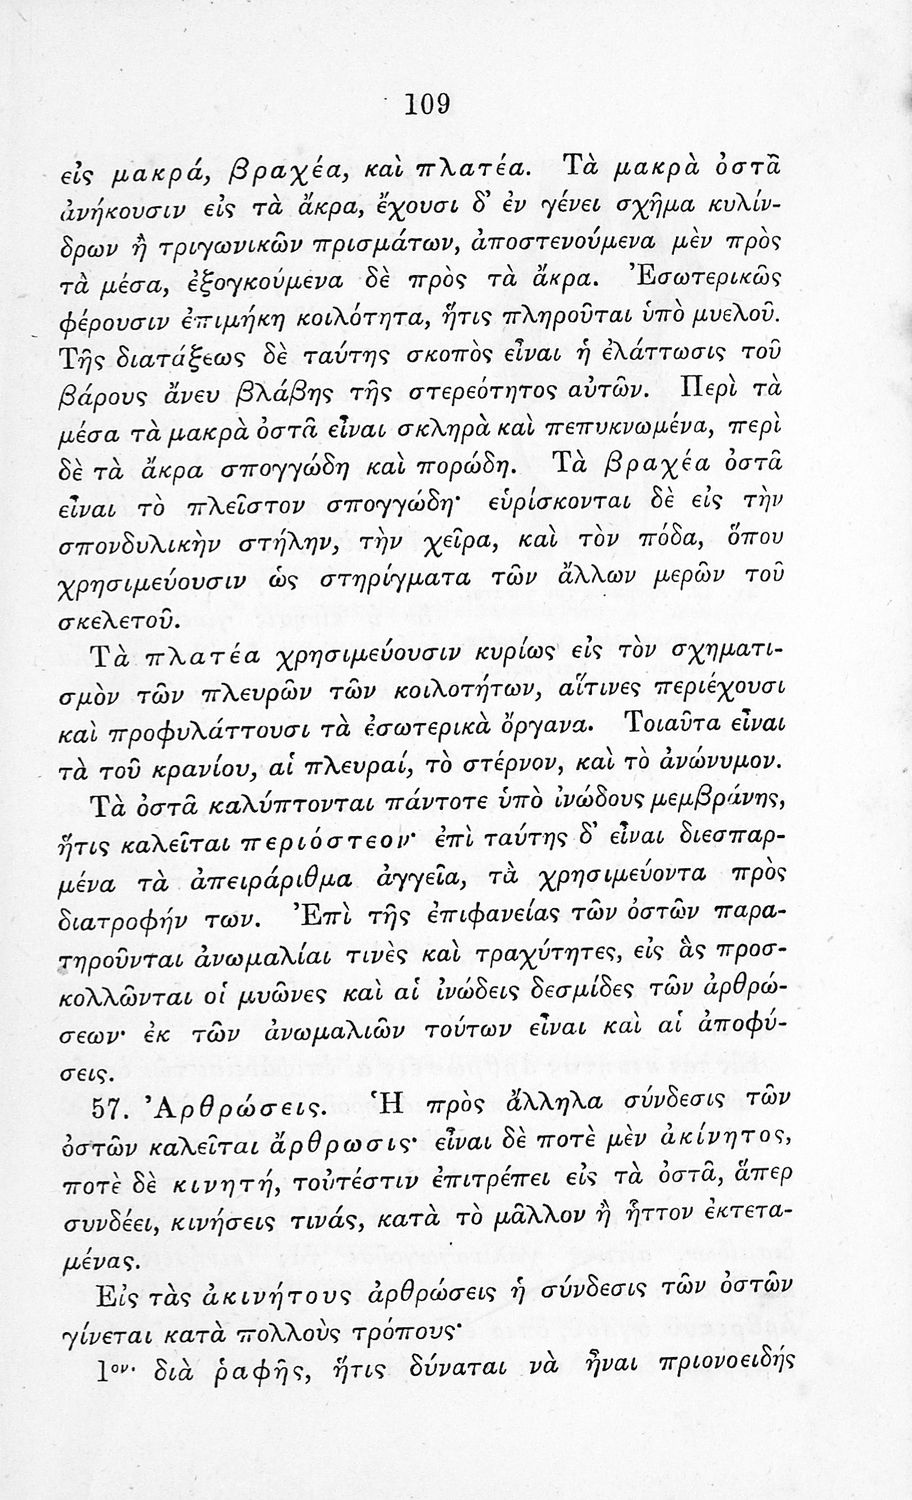 109
εἰς μακρά, βραχέα, καὶ πλατέα. Τὰ μακρὰ ὀστᾶ
ἀνήκουσιν εἰς τὰ ἄκρα, ἔχουσι δ' ἐν γένει σχῆμα κυλίν-
δρων ἢ τριγωνικῶν πρισμάτων, ἀποστενούμενα μὲν πρὸς
τὰ μέσα, ἐξογκούμενα δὲ πρὸς τὰ ἄκρα. Ἐσωτερικῶς
φέρουσιν ἐπιμήκη κοιλότητα, ἥτις πληροῦται ὑπὸ μυελοῦ.
Τῆς διατάξεως δὲ ταύτης σκοπὸς εἶναι ἡ ἐλάττωσις τοῦ
βάρους ἄνευ βλάβης τῆς στερεότητος αὐτῶν. Περὶ τὰ
μέσα τὰ μακρὰ ὀστᾶ εἶναι σκληρὰ καὶ πεπυκνωμένα, περὶ
δὲ τὰ ἄκρα σπογγώδη καὶ πορώδη. Τὰ βραχέα ὀστᾶ
εἶναι τὸ πλεῖστον σπογγώδη· εὑρίσκονται δὲ εἰς τὴν
σπονδυλικὴν στήλην, τὴν χεῖρα, καὶ τὸν πόδα, ὅπου
χρησιμεύουσιν ὡς στηρίγματα τῶν ἄλλων μερῶν τοῦ
σκελετοῦ.
Τὰ πλατέα χρησιμεύουσιν κυρίως εἰς τὸν σχηματι-
σμὸν τῶν πλευρῶν τῶν κοιλοτήτων, αἵτινες περιέχουσι
καὶ προφυλάττουσι τὰ ἐσωτερικὰ ὄργανα. Τοιαῦτα εἶναι
τὰ τοῦ κρανίου, αἱ πλευραί, τὸ στέρνον, καὶ τὸ ἀνώνυμον.
Τὰ ὀστᾶ καλύπτονται πάντοτε ὑπὸ ἰνώδους μεμβράνης,
ἥτις καλεῖται περιόστεον· ἐπὶ ταύτης δ' εἶναι διεσπαρ-
μένα τὰ ἀπειράριθμα ἀγγεῖα, τὰ χρησιμεύοντα πρὸς
διατροφήν των. Ἐπὶ τῆς ἐπιφανείας τῶν ὀστῶν παρα-
τηροῦνται ἀνωμαλίαι τινὲς καὶ τραχύτητες, εἰς ἃς προσ-
κολλῶνται οἱ μυῶνες καὶ αἱ ἰνώδεις δεσμίδες τῶν ἀρθρώ-
σεων· ἐκ τῶν ἀνωμαλιῶν τούτων εἶναι καὶ αἱ ἀποφύ-
σεις.
57. Ἀρθρώσεις. Ἡ πρὸς ἄλληλα σύνδεσις τῶν
ὀστῶν καλεῖται ἄρθρωσις· εἶναι δὲ ποτὲ μὲν ἀκίνητος,
ποτὲ δὲ κινητή, τοὐτέστιν ἐπιτρέπει εἰς τὰ ὀστᾶ, ἅπερ
συνδέει, κινήσεις τινάς, κατὰ τὸ μᾶλλον ἢ ἧττον ἐκτετα-
μένας.
Εἰς τὰς ἀκινήτους ἀρθρώσεις ἡ σύνδεσις τῶν ὀστῶν
γίνεται κατὰ πολλοὺς τρόπους·
1ον· διὰ ῥαφῆς, ἥτις δύναται νὰ ἦναι πριονοειδής